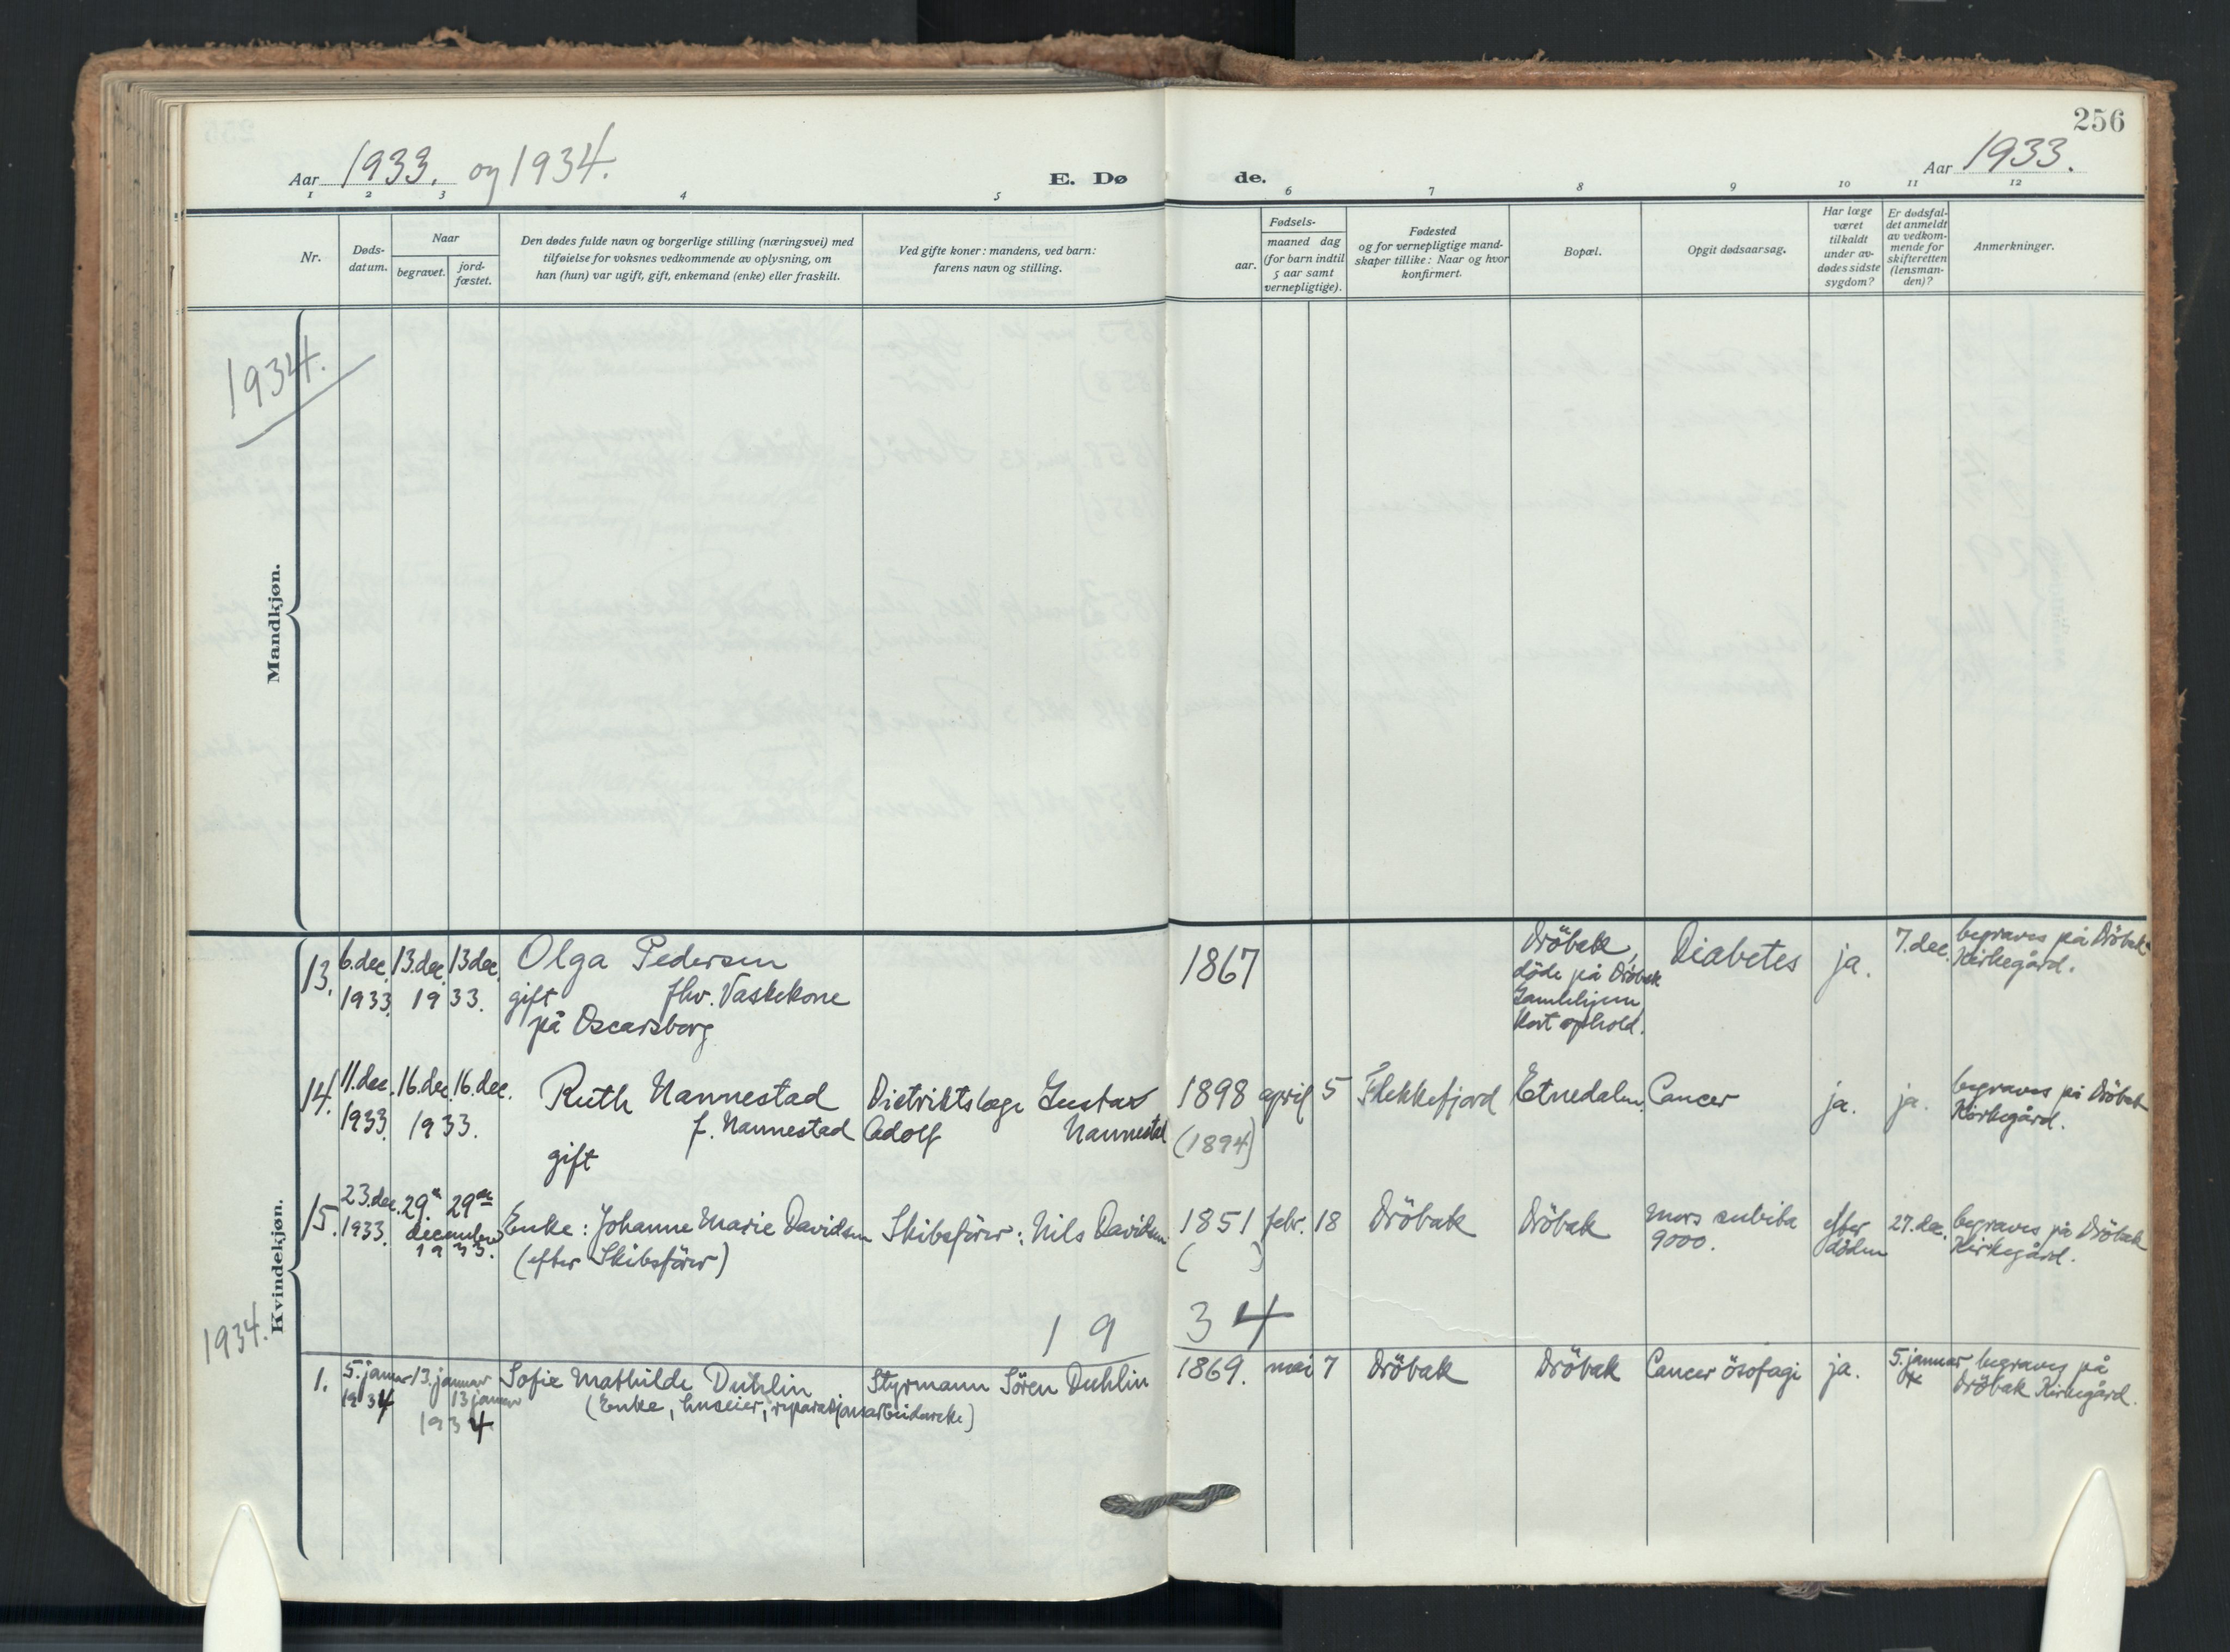 256
Aar 1933. og 1934.
E. Dø
de.
Aar 1933.
1 2 3 4 5 6 7 8 9 10 11 12
Nr.
Døds-
datum.
Naar
begravet.
jord-
fæstet.
Den dødes fulde navn og borgerlige stilling (næringsvei) med
tilføielse for voksnes vedkommende av oplysning, om
han (hun) var ugift, gift, enkemand (enke) eller fraskilt.
Ved gifte koner: mandens, ved barn:
farens navn og stilling.
Fødsels-
aar.
maaned dag
(for barn indtil
5 aar samt
vernepligtige).
Fødested
og for vernepligtige mand-
skaper tillike: Naar og hvor
konfirmert.
Bopæl.
Opgit dødsaarsag.
Har læge
været
tilkaldt
under av-
dødes sidste
sygdom?
Er dødsfal-
det anmeldt
av vedkom-
mende for
skifteretten
(lensman-
den)?
Anmerkninger.
1934.
Mandkjøn.
Kvindekjøn.
13.
6. dec.
1933.
13. dec. 13 dec.
19 33.
Olga Pedersen
gift fhv. Vaskekone
på Oscarsborg
1867
Dröbak,
döde på Dröbak
Gamlehjem
kort ophold.
Diabetes
ja.
7. dec.
begraves på Dröbak
Kirkegård.
14.
11. dec.
1933.
16. dec. 16. dec.
19 33.
Ruth Nannestad
f. Nannestad
gift
Distriktslæge Gustav
Adolf Nannestad
1898
(1894)
april
5
Flekkefjord
Etnedalen.
Cancer
ja.
ja.
begraves på Dröbak
Kirkegård.
15.
23. dec.
1933.
29. 29
december
1933.
Enke: Johanne Marie Davidsen
(efter Skibsförer)
Skibsförer: Nils Davidsen
1851
( )
febr.
18
Dröbak
Dröbak
mors subita
9000.
efter
döden
27. dec.
begraves på Dröbak
Kirkegård.
1934.
19 34
1.
5. januar
1934
13. januar
13 januar
1934
Sofie Mathilde Duhlin
(Enke, huseier, reparasjonsarbeiderske)
Styrmann Sören Duhlin
1869.
mai
7
Dröbak
Dröbak
Cancer ösofagi
ja.
5. januar
begraves på
Dröbak Kirkegård.